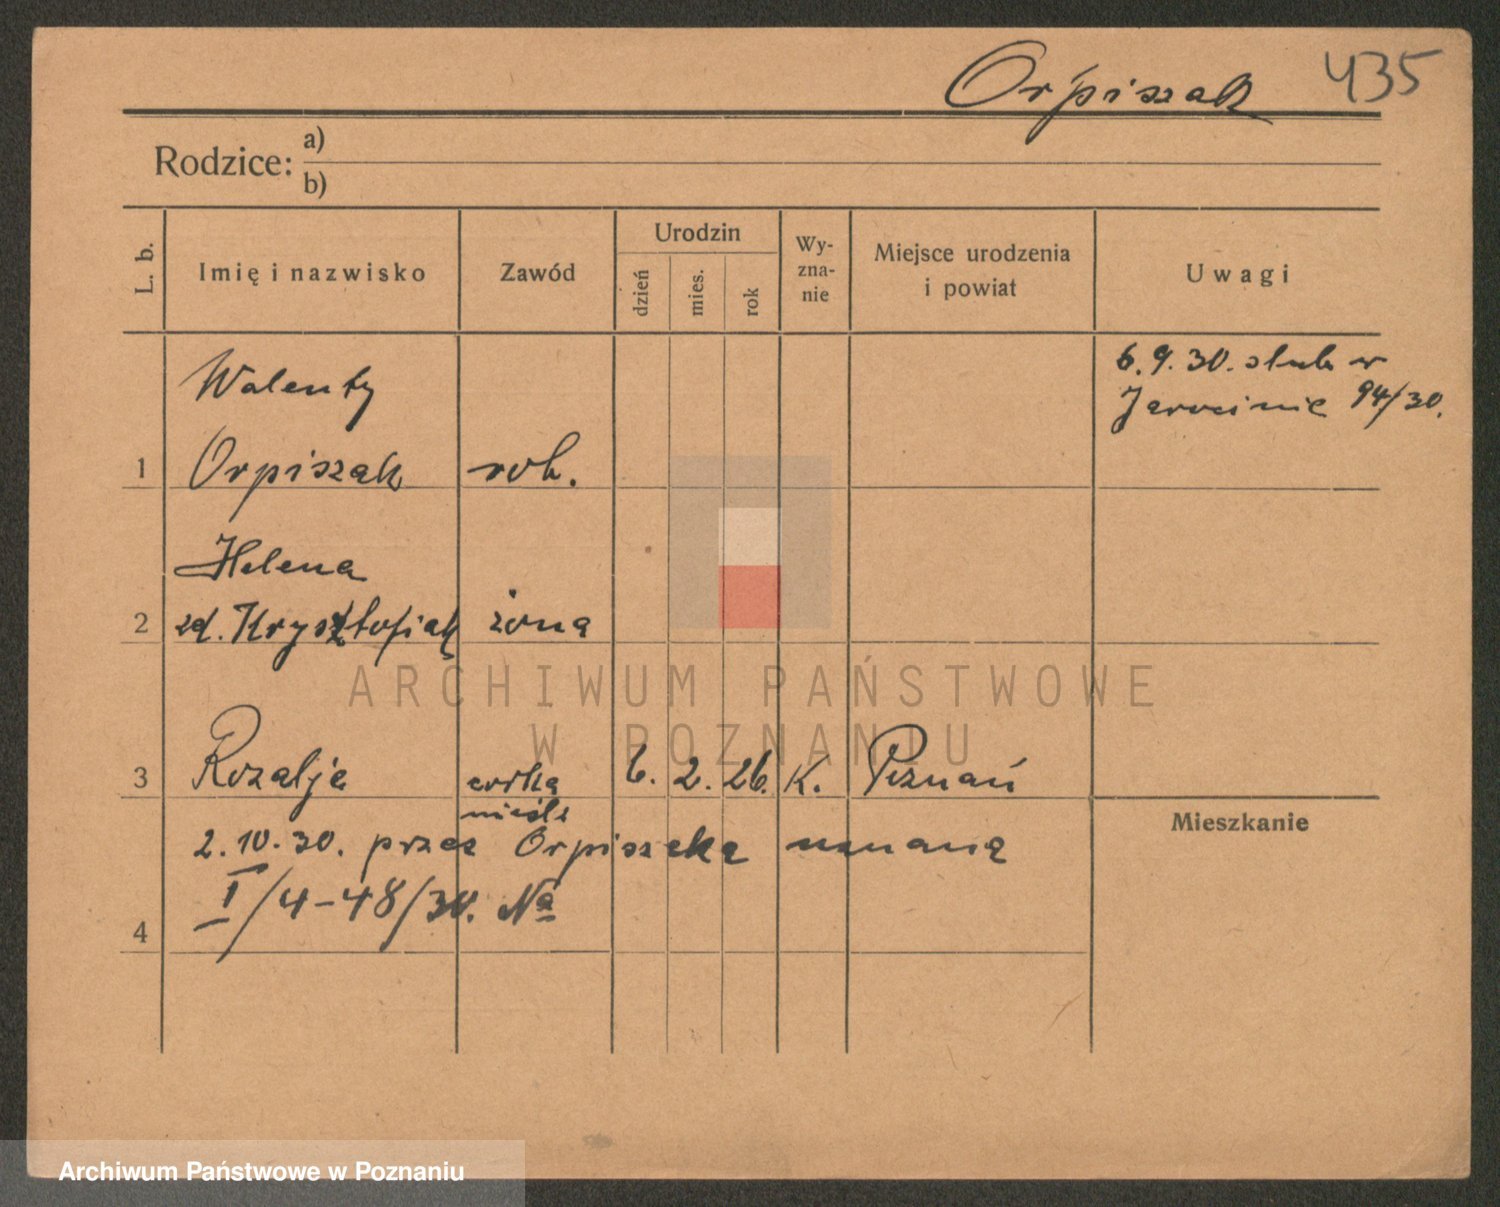 Orpiszak 435
Rodzice: a)
b)
L. b.
Imię i nazwisko
Zawód
Urodzin
dzień
mies.
rok
Wy-
zna-
nie
Miejsce urodzenia
i powiat
Uwagi
Walenty
6.9.30. ślub w
Jarocinie 94/30.
1 Orpiszak rob.
Helena
2 zd. Krysztofiak żona
ARCHIWUM PAŃSTWOWE
W POZNANIU
3 Rozalja córka 6. 2. 26. K. Poznań
nieśl.
Mieszkanie
2.10.30. przez Orpiszaka uznaną
I/4-48/30.
4
Archiwum Państwowe w Poznaniu